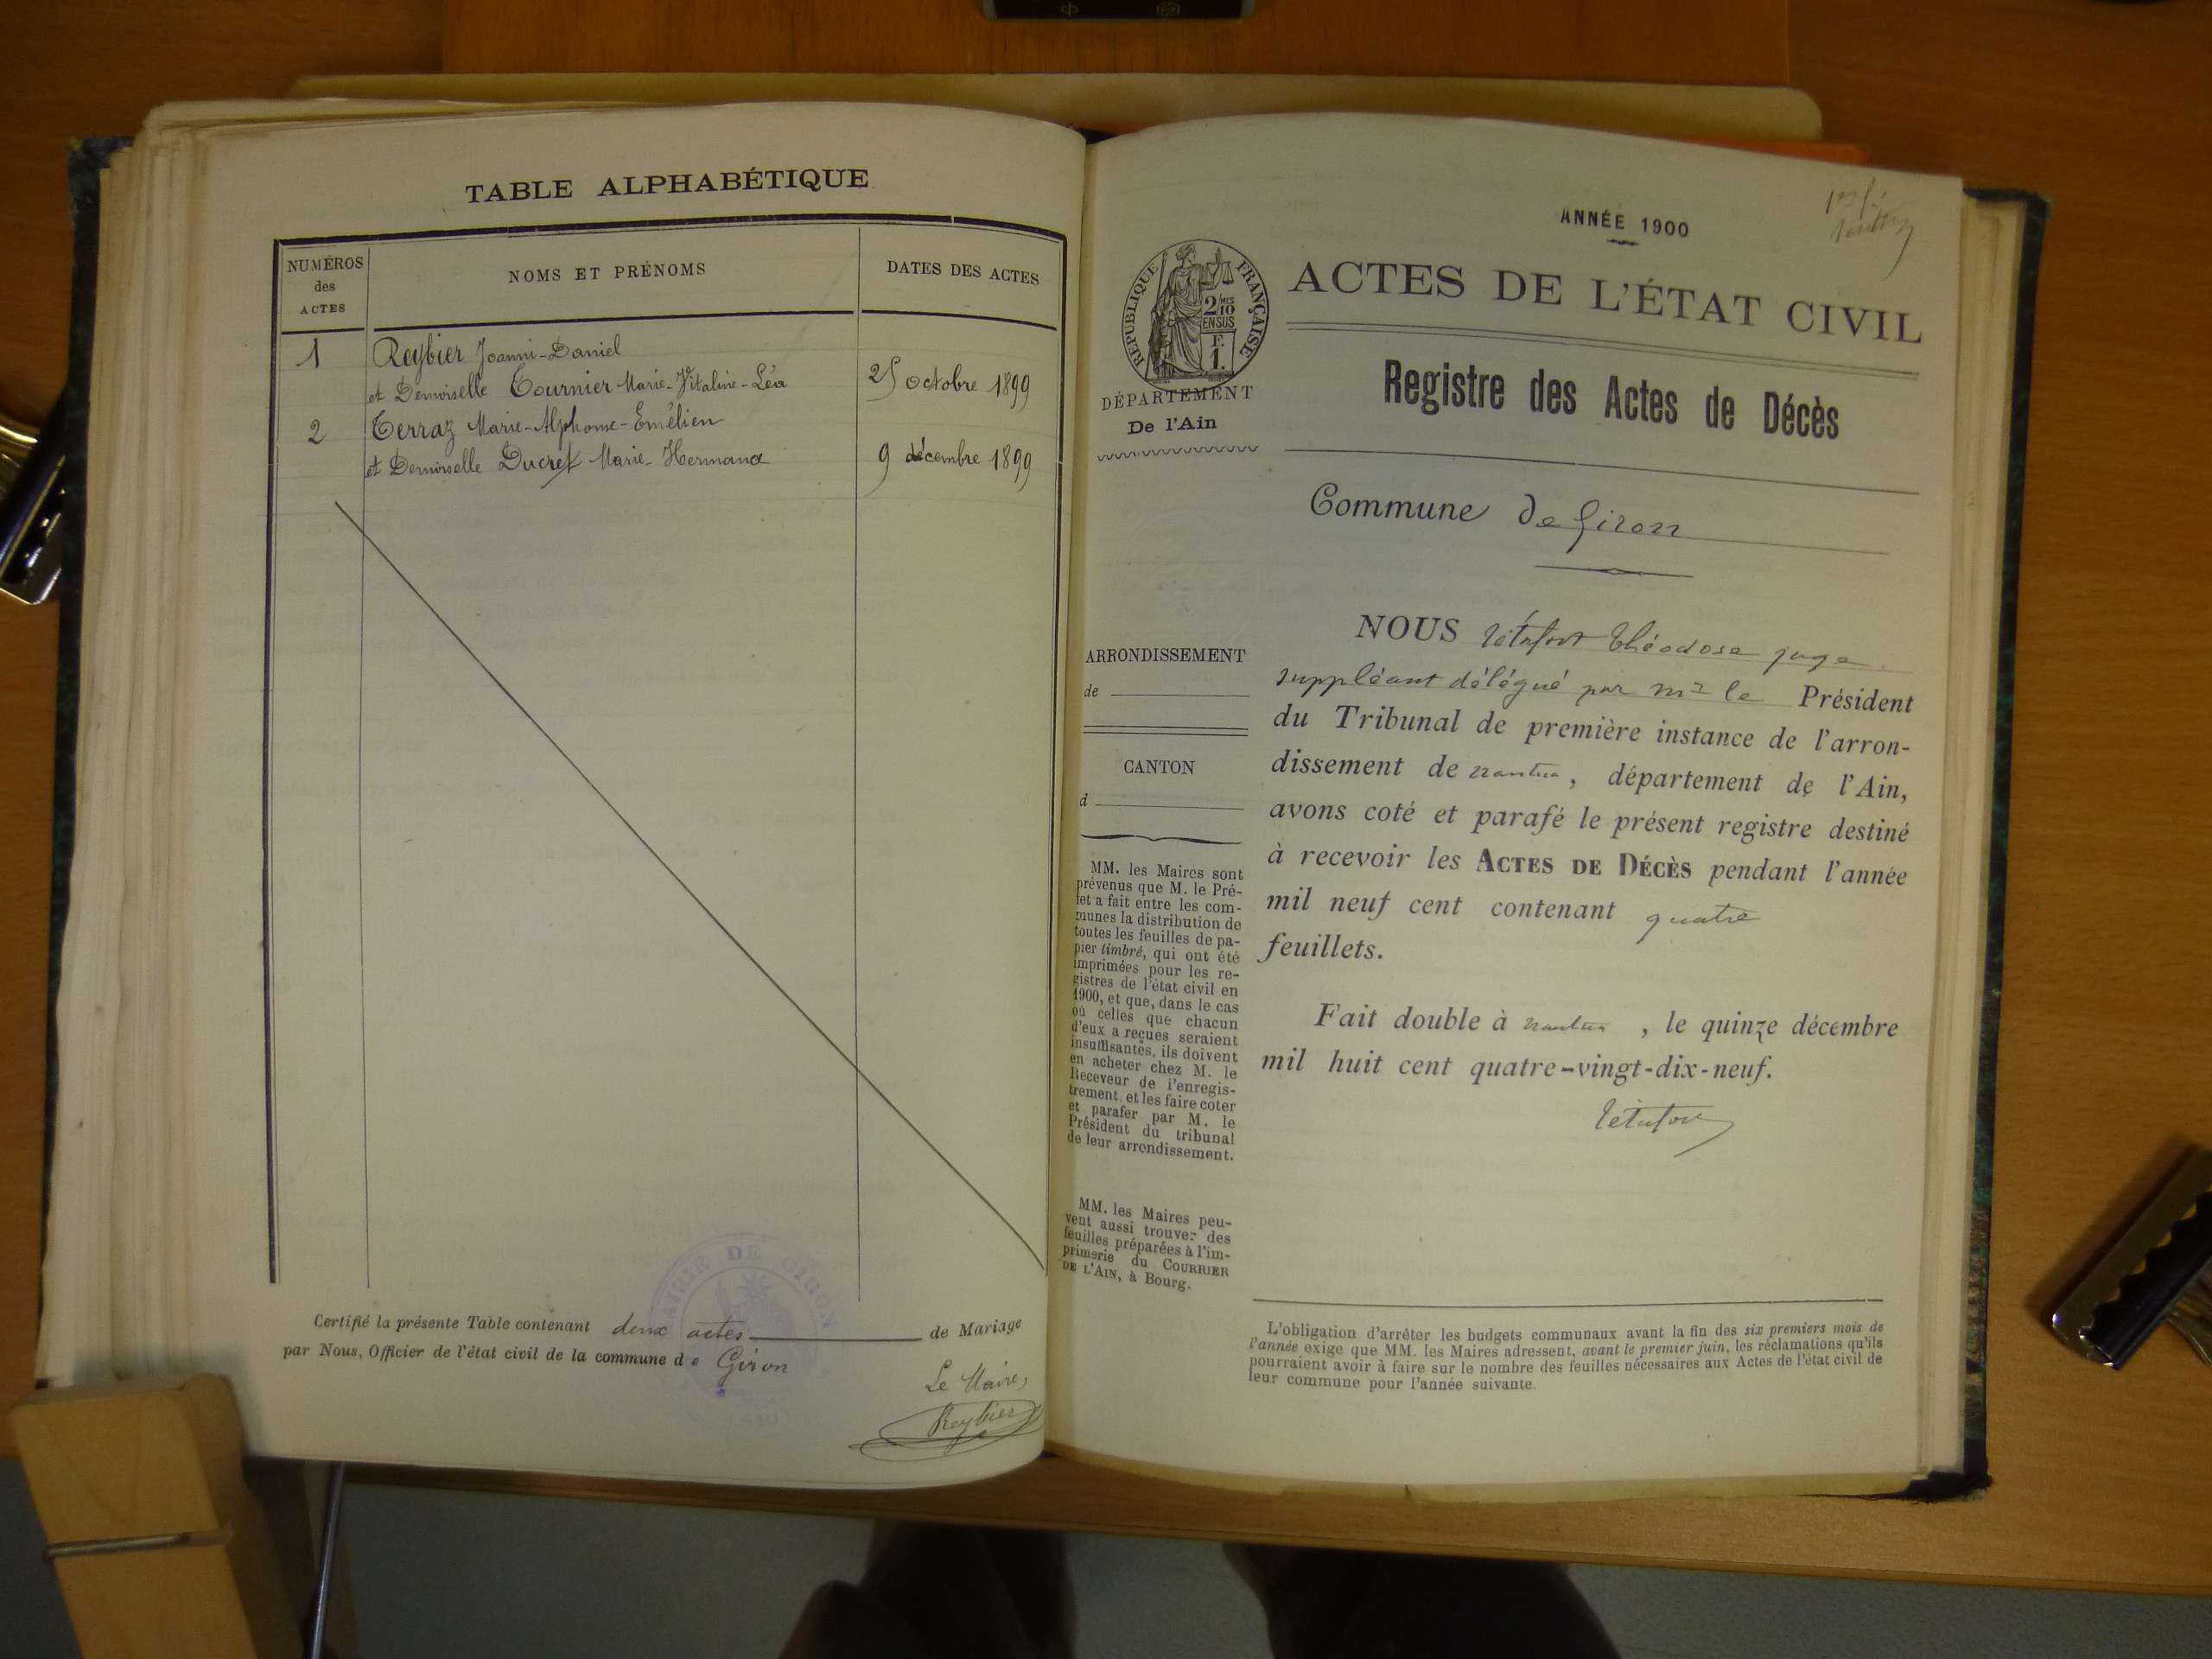 TABLE ALPHABÉTIQUE
NUMÉROS
des
ACTES
NOMS ET PRÉNOMS
DATES DES ACTES
1
Reybier Joanni-Daniel
et Demoiselle Tournier Marie-Vitaline-Léa
25 octobre 1899
2
Terraz Marie-Alphonse-Emélien
et Demoiselle Ducret Marie-Hermance
9 décembre 1899
MAIRIE DE GIRON
Certifié la présente Table contenant deux actes de Mariage
par Nous, Officier de l'état civil de la commune de Giron
Le Maire,
Reybier
ANNÉE 1900
RÉPUBLIQUE FRANÇAISE
2/10 MES
EN SUS
F.
1.
DÉPARTEMENT
De l'Ain
ACTES DE L'ÉTAT CIVIL
Registre des Actes de Décès
Commune de Giron
ARRONDISSEMENT
de
CANTON
d
MM. les Maires sont
prévenus que M. le Pré-
fet a fait entre les com-
munes la distribution de
toutes les feuilles de pa-
pier timbré, qui ont été
imprimées pour les re-
gistres de l'état civil en
1900, et que, dans le cas
où celles que chacun
d'eux a reçues seraient
insuffisantes, ils doivent
en acheter chez M. le
Receveur de l'enregis-
trement, et les faire coter
et parafer par M. le
Président du tribunal
de leur arrondissement.
MM. les Maires peu-
vent aussi trouver des
feuilles préparées à l'im-
primerie du COURRIER
DE L'AIN, à Bourg.
NOUS Théodose juge
suppléant délégué par Mr le Président
du Tribunal de première instance de l'arron-
dissement de nantua, département de l'Ain,
avons coté et parafé le présent registre destiné
à recevoir les ACTES DE DÉCÈS pendant l'année
mil neuf cent contenant quatre
feuillets.
Fait double à nantua, le quinze décembre
mil huit cent quatre-vingt-dix-neuf.
L'obligation d'arrêter les budgets communaux avant la fin des six premiers mois de
l'année exige que MM. les Maires adressent, avant le premier juin, les réclamations qu'ils
pourraient avoir à faire sur le nombre des feuilles nécessaires aux Actes de l'état civil de
leur commune pour l'année suivante.